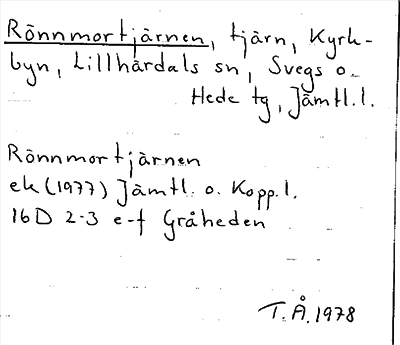 Rönnmortjärnen, tjärn, Kyrk-
byn, Lillhärdals sn, Svegs o.
Hede tg, Jämtl.l.
Rönnmortjärnen
ek (1977) Jämtl. o. Kopp.l.
16D 2-3 e-f Gråheden
T.Å. 1978